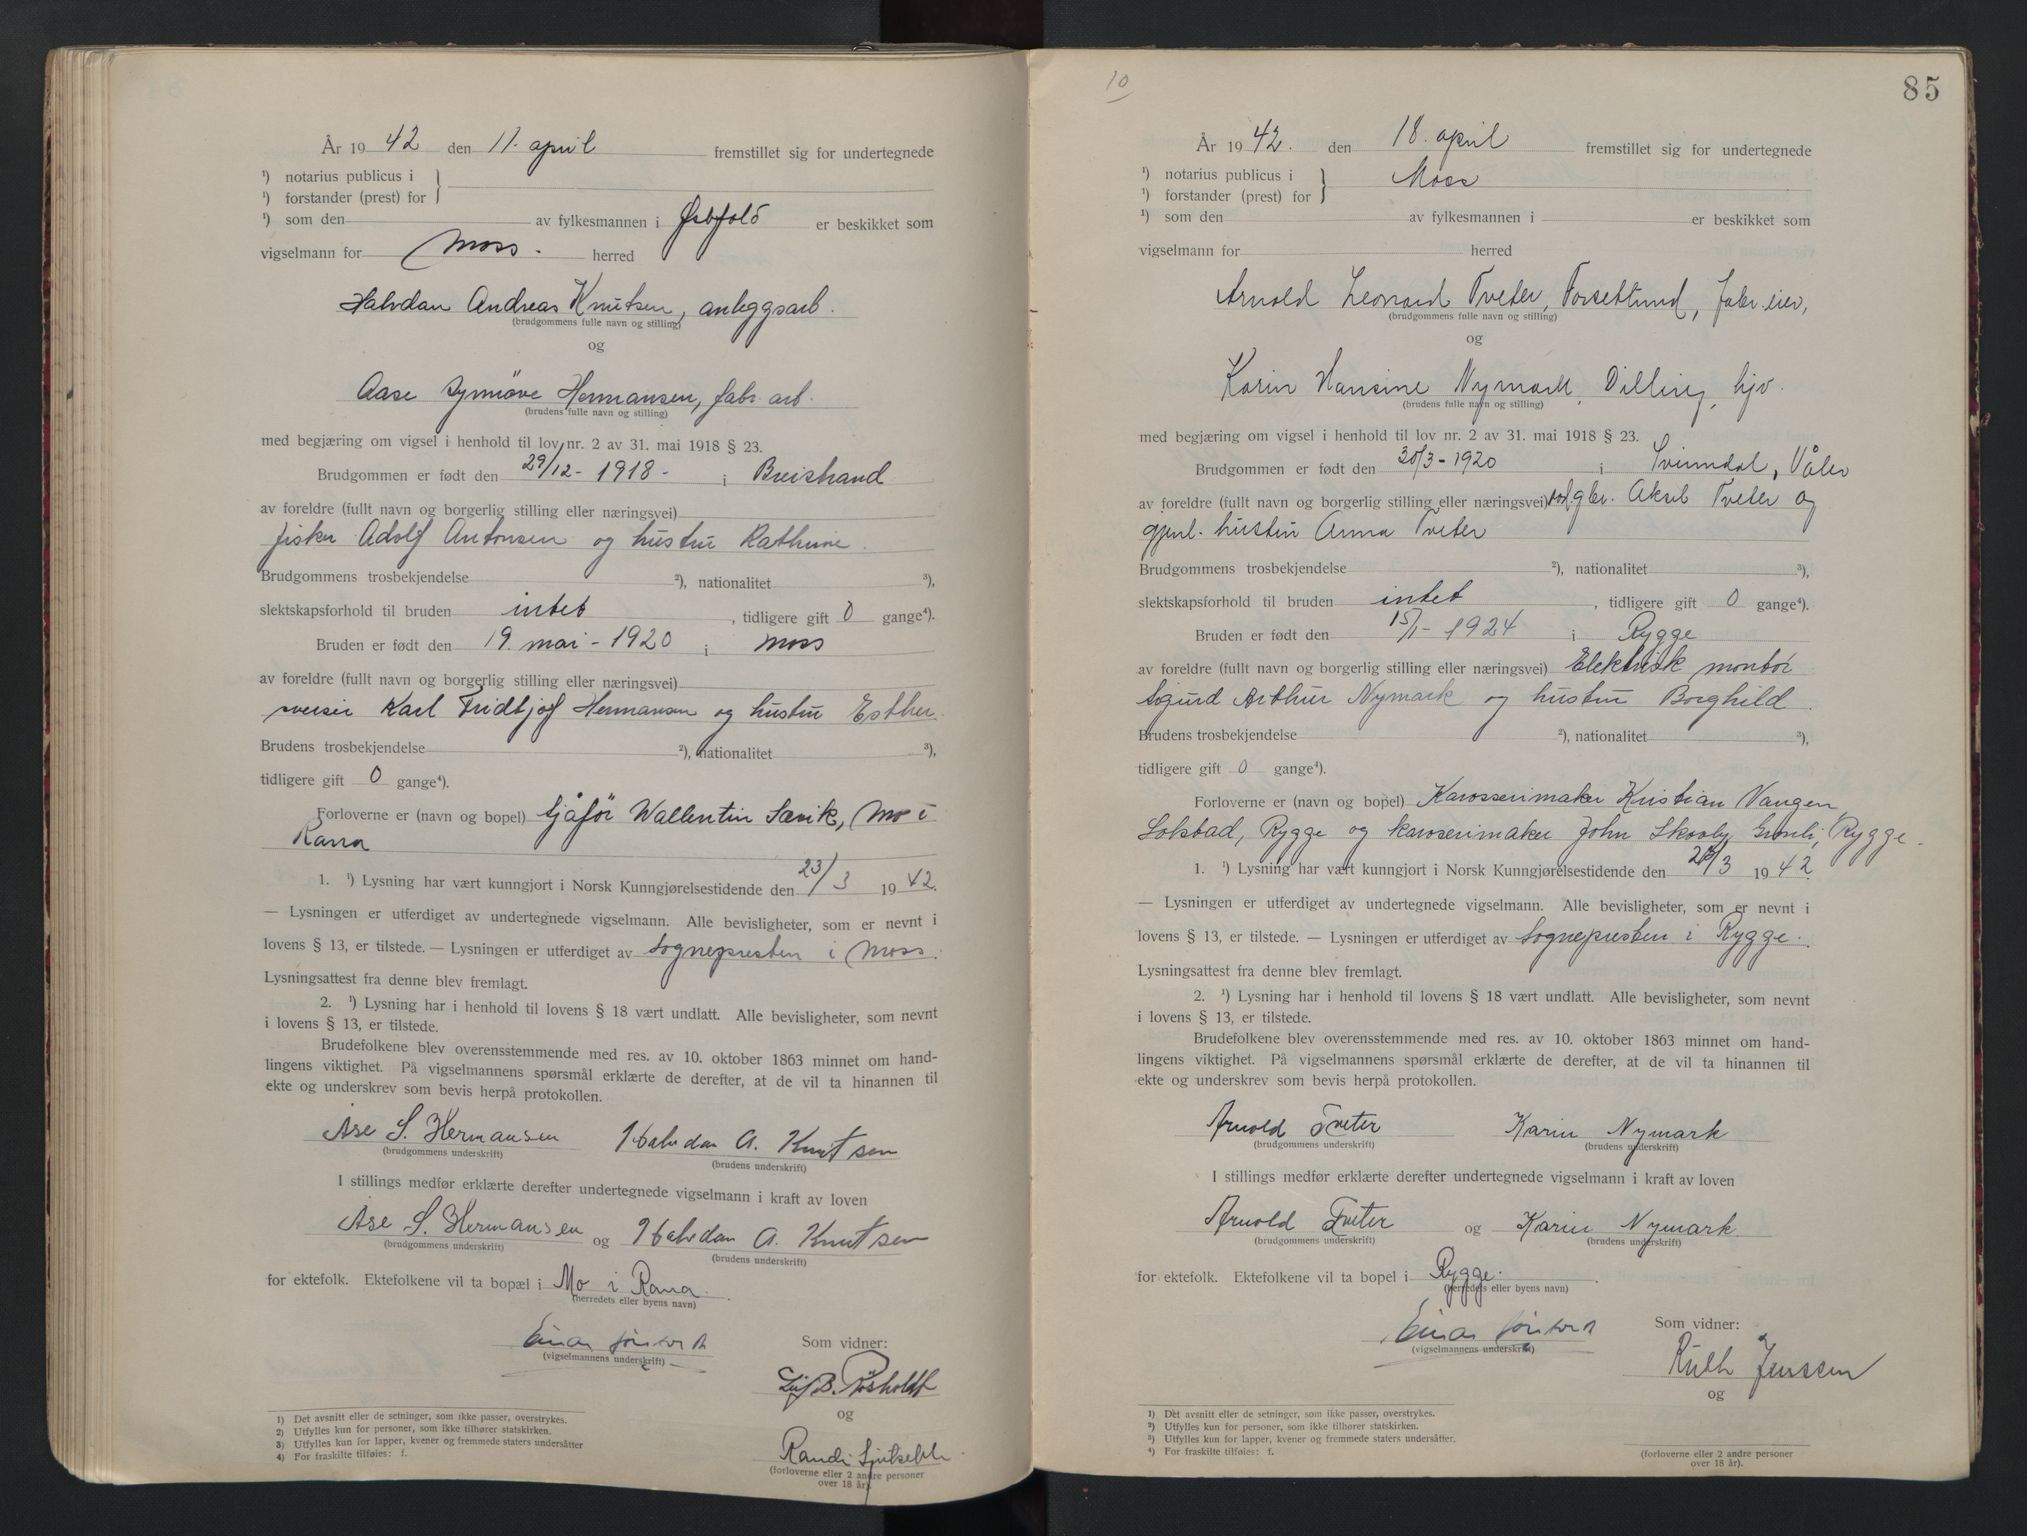 År 19 42 den 11. april fremstillet sig for undertegnede
¹) notarius publicus i
¹) forstander (prest) for
¹) som den av fylkesmannen i Østfold er beskikket som
vigselmann for Moss. herred
Halvdan Andreas Knutsen, anleggsarb.
(brudgommens fulle navn og stilling)
og
Aase Synnöve Hermansen, fabr. arb.
(brudens fulle navn og stilling)
med begjæring om vigsel i henhold til lov nr. 2 av 31. mai 1918 § 23.
Brudgommen er født den 29/12 - 1918 - i Breistrand
av foreldre (fullt navn og borgerlig stilling eller næringsvei)
fisker Adolf Antonsen og hustru Kathrine.
Brudgommens trosbekjendelse ²), nationalitet ³),
slektskapsforhold til bruden intet, tidligere gift 0 gange⁴).
Bruden er født den 19. mai - 1920 i Moss
av foreldre (fullt navn og borgerlig stilling eller næringsvei)
Karl Fridtjof Hermansen og hustru Esther.
Brudens trosbekjendelse ²), nationalitet ³),
tidligere gift 0 gange⁴).
Forloverne er (navn og bopel) Sjåför Wallentin Sævik, Mo i
Rana
1. ¹) Lysning har vært kunngjort i Norsk Kunngjørelsestidende den 23/3 19 42.
— Lysningen er utferdiget av undertegnede vigselmann. Alle bevisligheter, som er nevnt i
lovens § 13, er tilstede. — Lysningen er utferdiget av Sognepresten i Moss.
Lysningsattest fra denne blev fremlagt.
2. ¹) Lysning har i henhold til lovens § 18 vært undlatt. Alle bevisligheter, som nevnt
i lovens § 13, er tilstede.
Brudefolkene blev overensstemmende med res. av 10. oktober 1863 minnet om hand-
lingens viktighet. På vigselmannens spørsmål erklærte de derefter, at de vil ta hinannen til
ekte og underskrev som bevis herpå protokollen.
Åse S. Hermansen Halvdan A. Knutsen
(brudgommens underskrift) (brudens underskrift)
I stillings medfør erklærte derefter undertegnede vigselmann i kraft av loven
Åse S. Hermansen og Halvdan A. Knutsen
(brudgommens underskrift) (brudens underskrift)
for ektefolk. Ektefolkene vil ta bopæl i Mo i Rana.
(herredets eller byens navn)
Einar
(vigselmannens underskrift)
Som vidner:
Leif B. Røsholdt
og
Randi
(forloverne eller 2 andre personer
over 18 år).
1) Det avsnitt eller de setninger, som ikke passer, overstrykes.
2) Utfylles kun for personer, som ikke tilhører statskirken.
3) Utfylles kun for lapper, kvener og fremmede staters undersåtter
4) For fraskilte tilføies: f.
10
85
År 19 42. den 18. april fremstillet sig for undertegnede
¹) notarius publicus i Moss
¹) forstander (prest) for
¹) som den av fylkesmannen i er beskikket som
vigselmann for herred
Arnold Leonard Tveter, Forsetlund, fabr. eier,
(brudgommens fulle navn og stilling)
og
Karin Hansine Nymark, Dilling, hjv.
(brudens fulle navn og stilling)
med begjæring om vigsel i henhold til lov nr. 2 av 31. mai 1918 § 23.
Brudgommen er født den 30/3 - 1920 i Svinndal, Våler
av foreldre (fullt navn og borgerlig stilling eller næringsvei) Aksel Tveter og
hustru Anna Tveter
Brudgommens trosbekjendelse ²), nationalitet ³),
slektskapsforhold til bruden intet, tidligere gift 0 gange⁴).
Bruden er født den 15/1 - 1924 i Rygge
av foreldre (fullt navn og borgerlig stilling eller næringsvei) Elektrisk montör
Sigurd Arthur Nymark og hustru Borghild.
Brudens trosbekjendelse ²), nationalitet ³),
tidligere gift 0 gange⁴).
Forloverne er (navn og bopel) Karosserimaker Kristian Vangen,
Solstad, Rygge og karosserimaker John Skovly, Rygge.
1. ¹) Lysning har vært kunngjort i Norsk Kunngjørelsestidende den 19 42.
— Lysningen er utferdiget av undertegnede vigselmann. Alle bevisligheter, som er nevnt i
lovens § 13, er tilstede. — Lysningen er utferdiget av Sognepresten i Rygge.
Lysningsattest fra denne blev fremlagt.
2. ¹) Lysning har i henhold til lovens § 18 vært undlatt. Alle bevisligheter, som nevnt
i lovens § 13, er tilstede.
Brudefolkene blev overensstemmende med res. av 10. oktober 1863 minnet om hand-
lingens viktighet. På vigselmannens spørsmål erklærte de derefter, at de vil ta hinannen til
ekte og underskrev som bevis herpå protokollen.
Arnold Tveter Karin Nymark
(brudgommens underskrift) (brudens underskrift)
I stillings medfør erklærte derefter undertegnede vigselmann i kraft av loven
Arnold Tveter og Karin Nymark.
(brudgommens underskrift) (brudens underskrift)
for ektefolk. Ektefolkene vil ta bopel i Rygge.
(herredets eller byens navn)
Einar
(vigselmannens underskrift)
Som vidner:
Ruth Jenssen
og
(forloverne eller 2 andre personer
over 18 år).
1) Det avsnitt eller de setninger, som ikke passer, overstrykes.
2) Utfylles kun for personer, som ikke tilhører statskirken.
3) Utfylles kun for lapper, kvener og fremmede staters undersåtter.
4) For fraskilte tilføies: f.